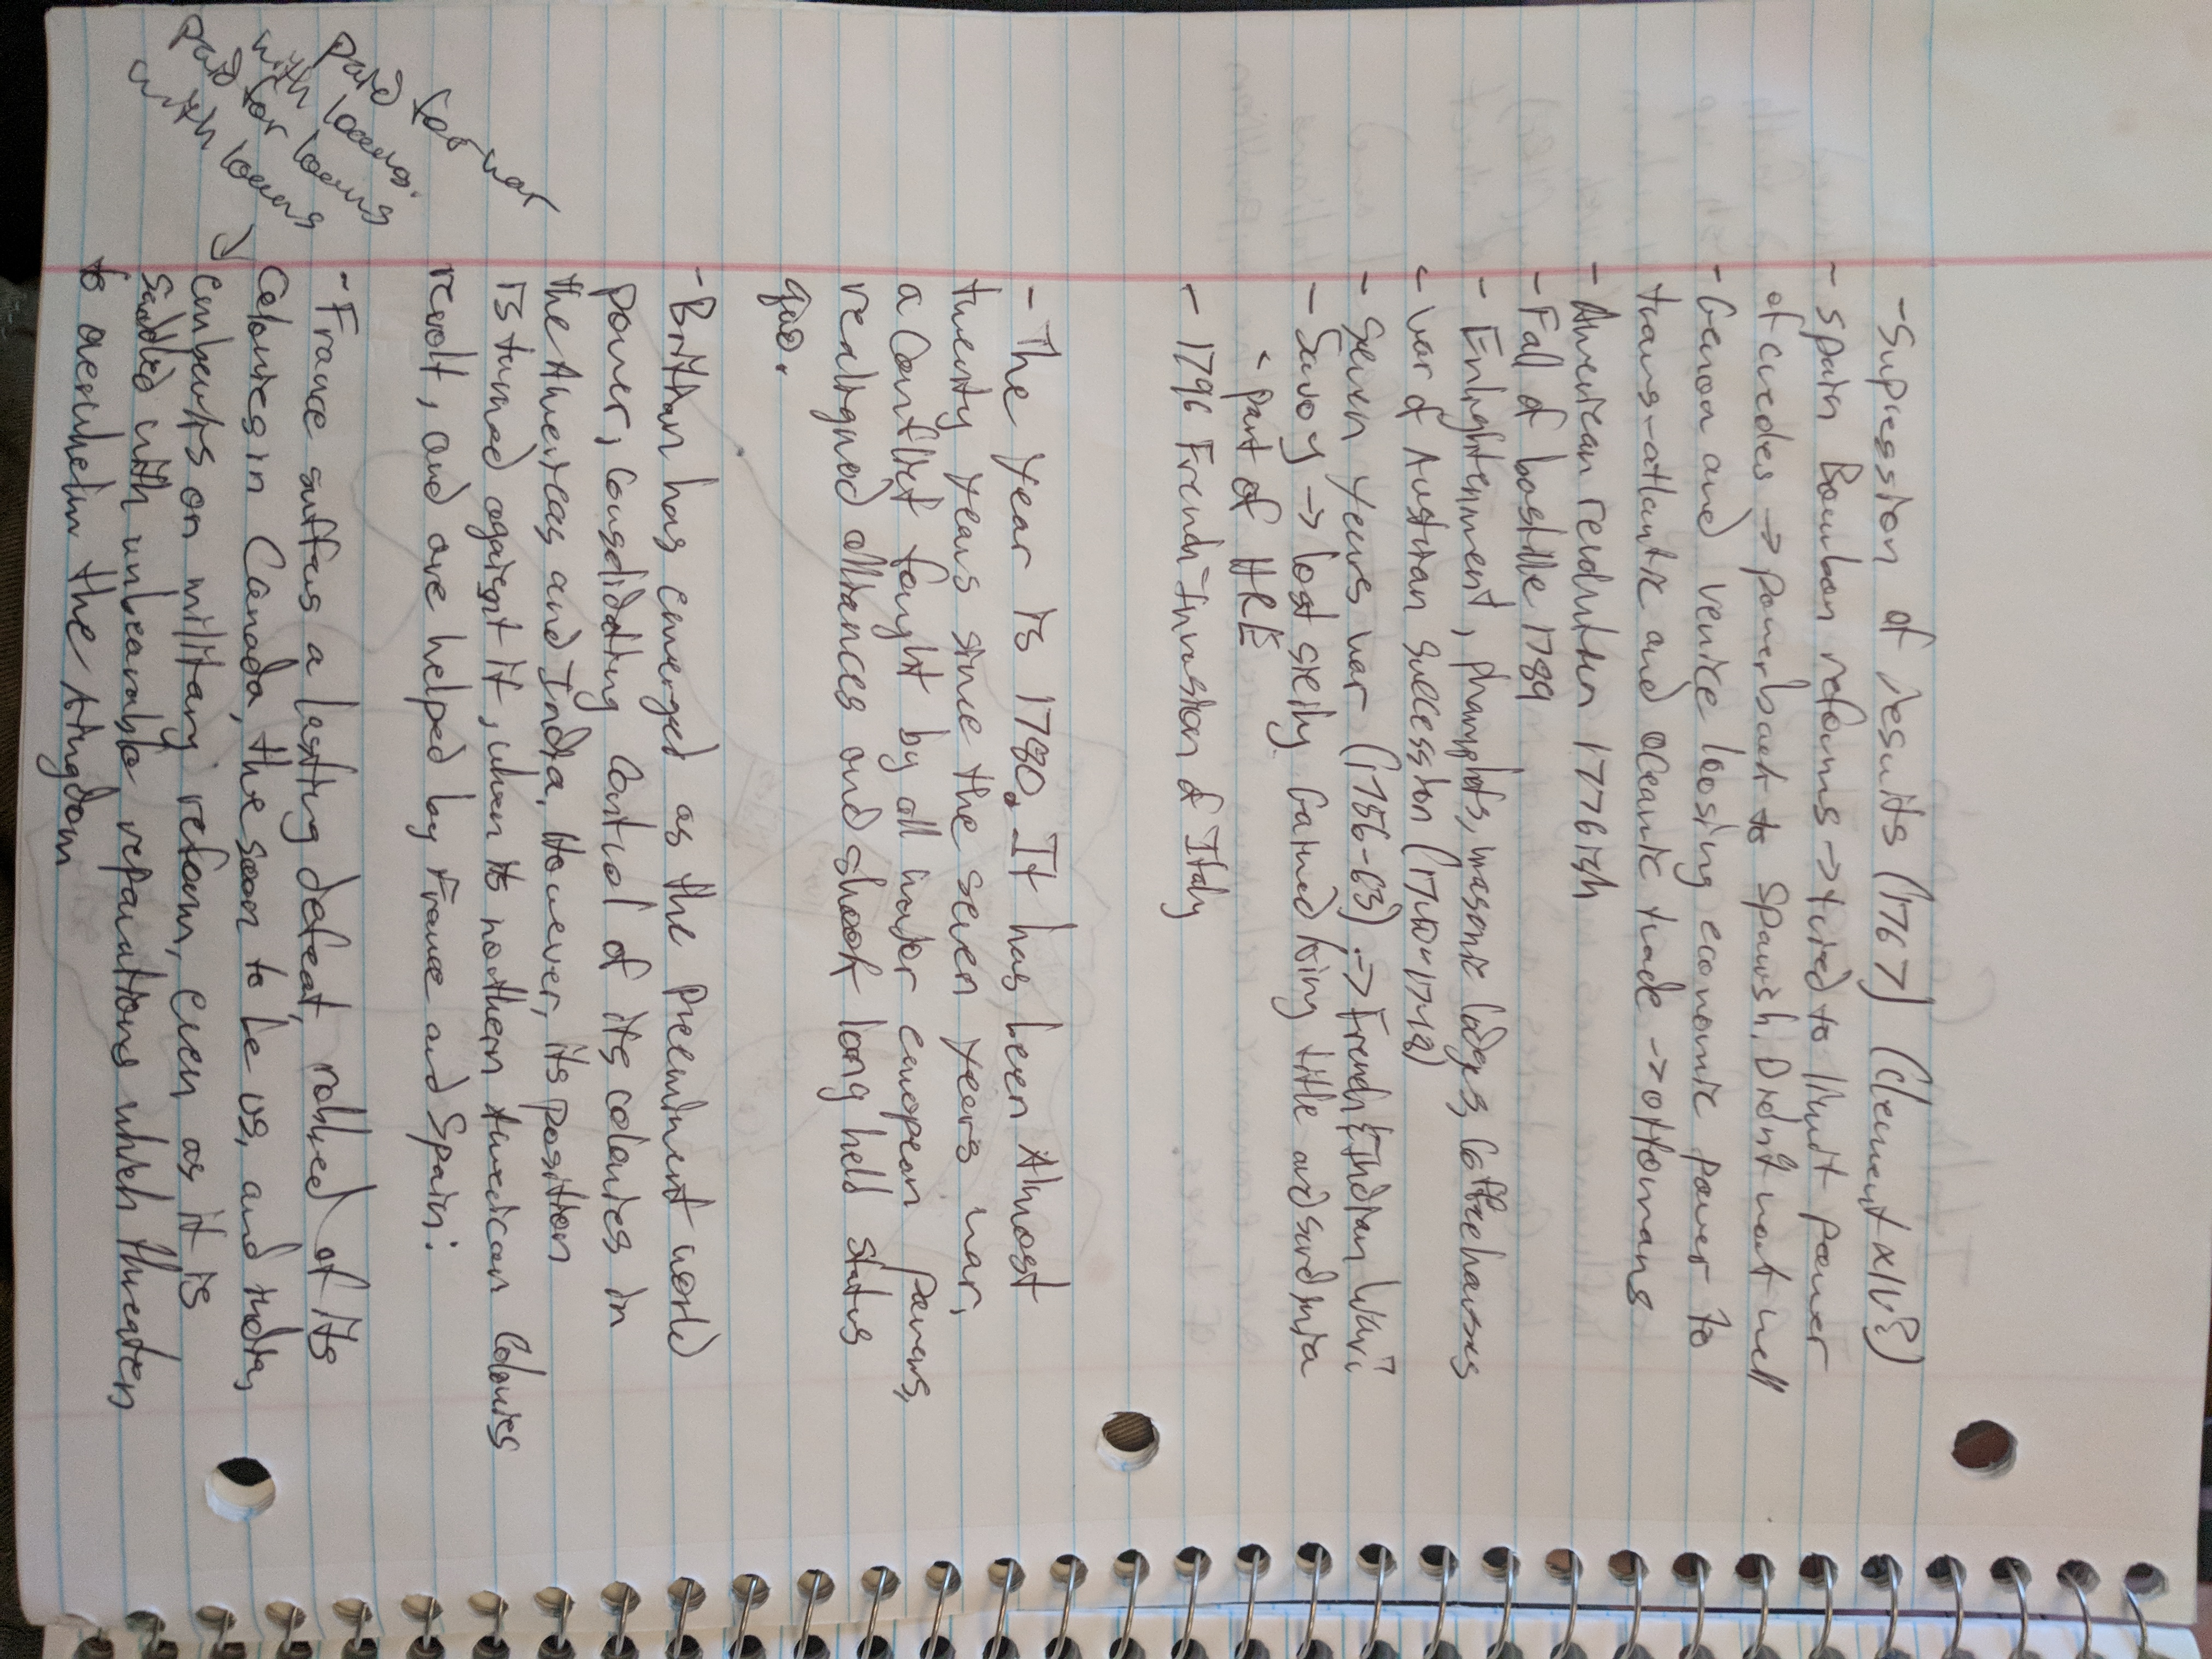 -Supression of jesuits (1767) (Clement XIV?)
- Spain Bourbon reforms -> tired to limit power
of creoles -> power back to Spanish. Didn't work well
- Genoa and Venice loosing economic power to
trans-atlantic and oceanic trade -> ottomans
- American revolution 1776ish
- Fall of bastille 1789
- Enlightenment, phamphlets, masonic lodges, Coffeehouses
- War of Austrian Succession (1740-1748)
- Seven years war (1756-63) -> French & Indian War
- Savoy -> lost sicily. Gained king title and sardinia
- part of HRE
- 1796 French Invasion of Italy
- The year is 1780. It has been Almost
twenty years since the seven years war,
a conflict fought by all major european powers,
realigned alliances and shook long held status
quo.
- Britian has emerged as the preeminent world
power, consolidating control of its colonies in
the Americas and India. However, its position
is turned against it, when its northern American Colonies
revolt, and are helped by France and Spain.
- France suffers a lasting defeat, robbed of its
Colonies in Canada, the soon to be US, and India,
embarks on military reform, even as it is
saddled with unbearable reparations which threaten
to overwhelm the kingdom
paid for war
with loans.
paid for loans
with loans